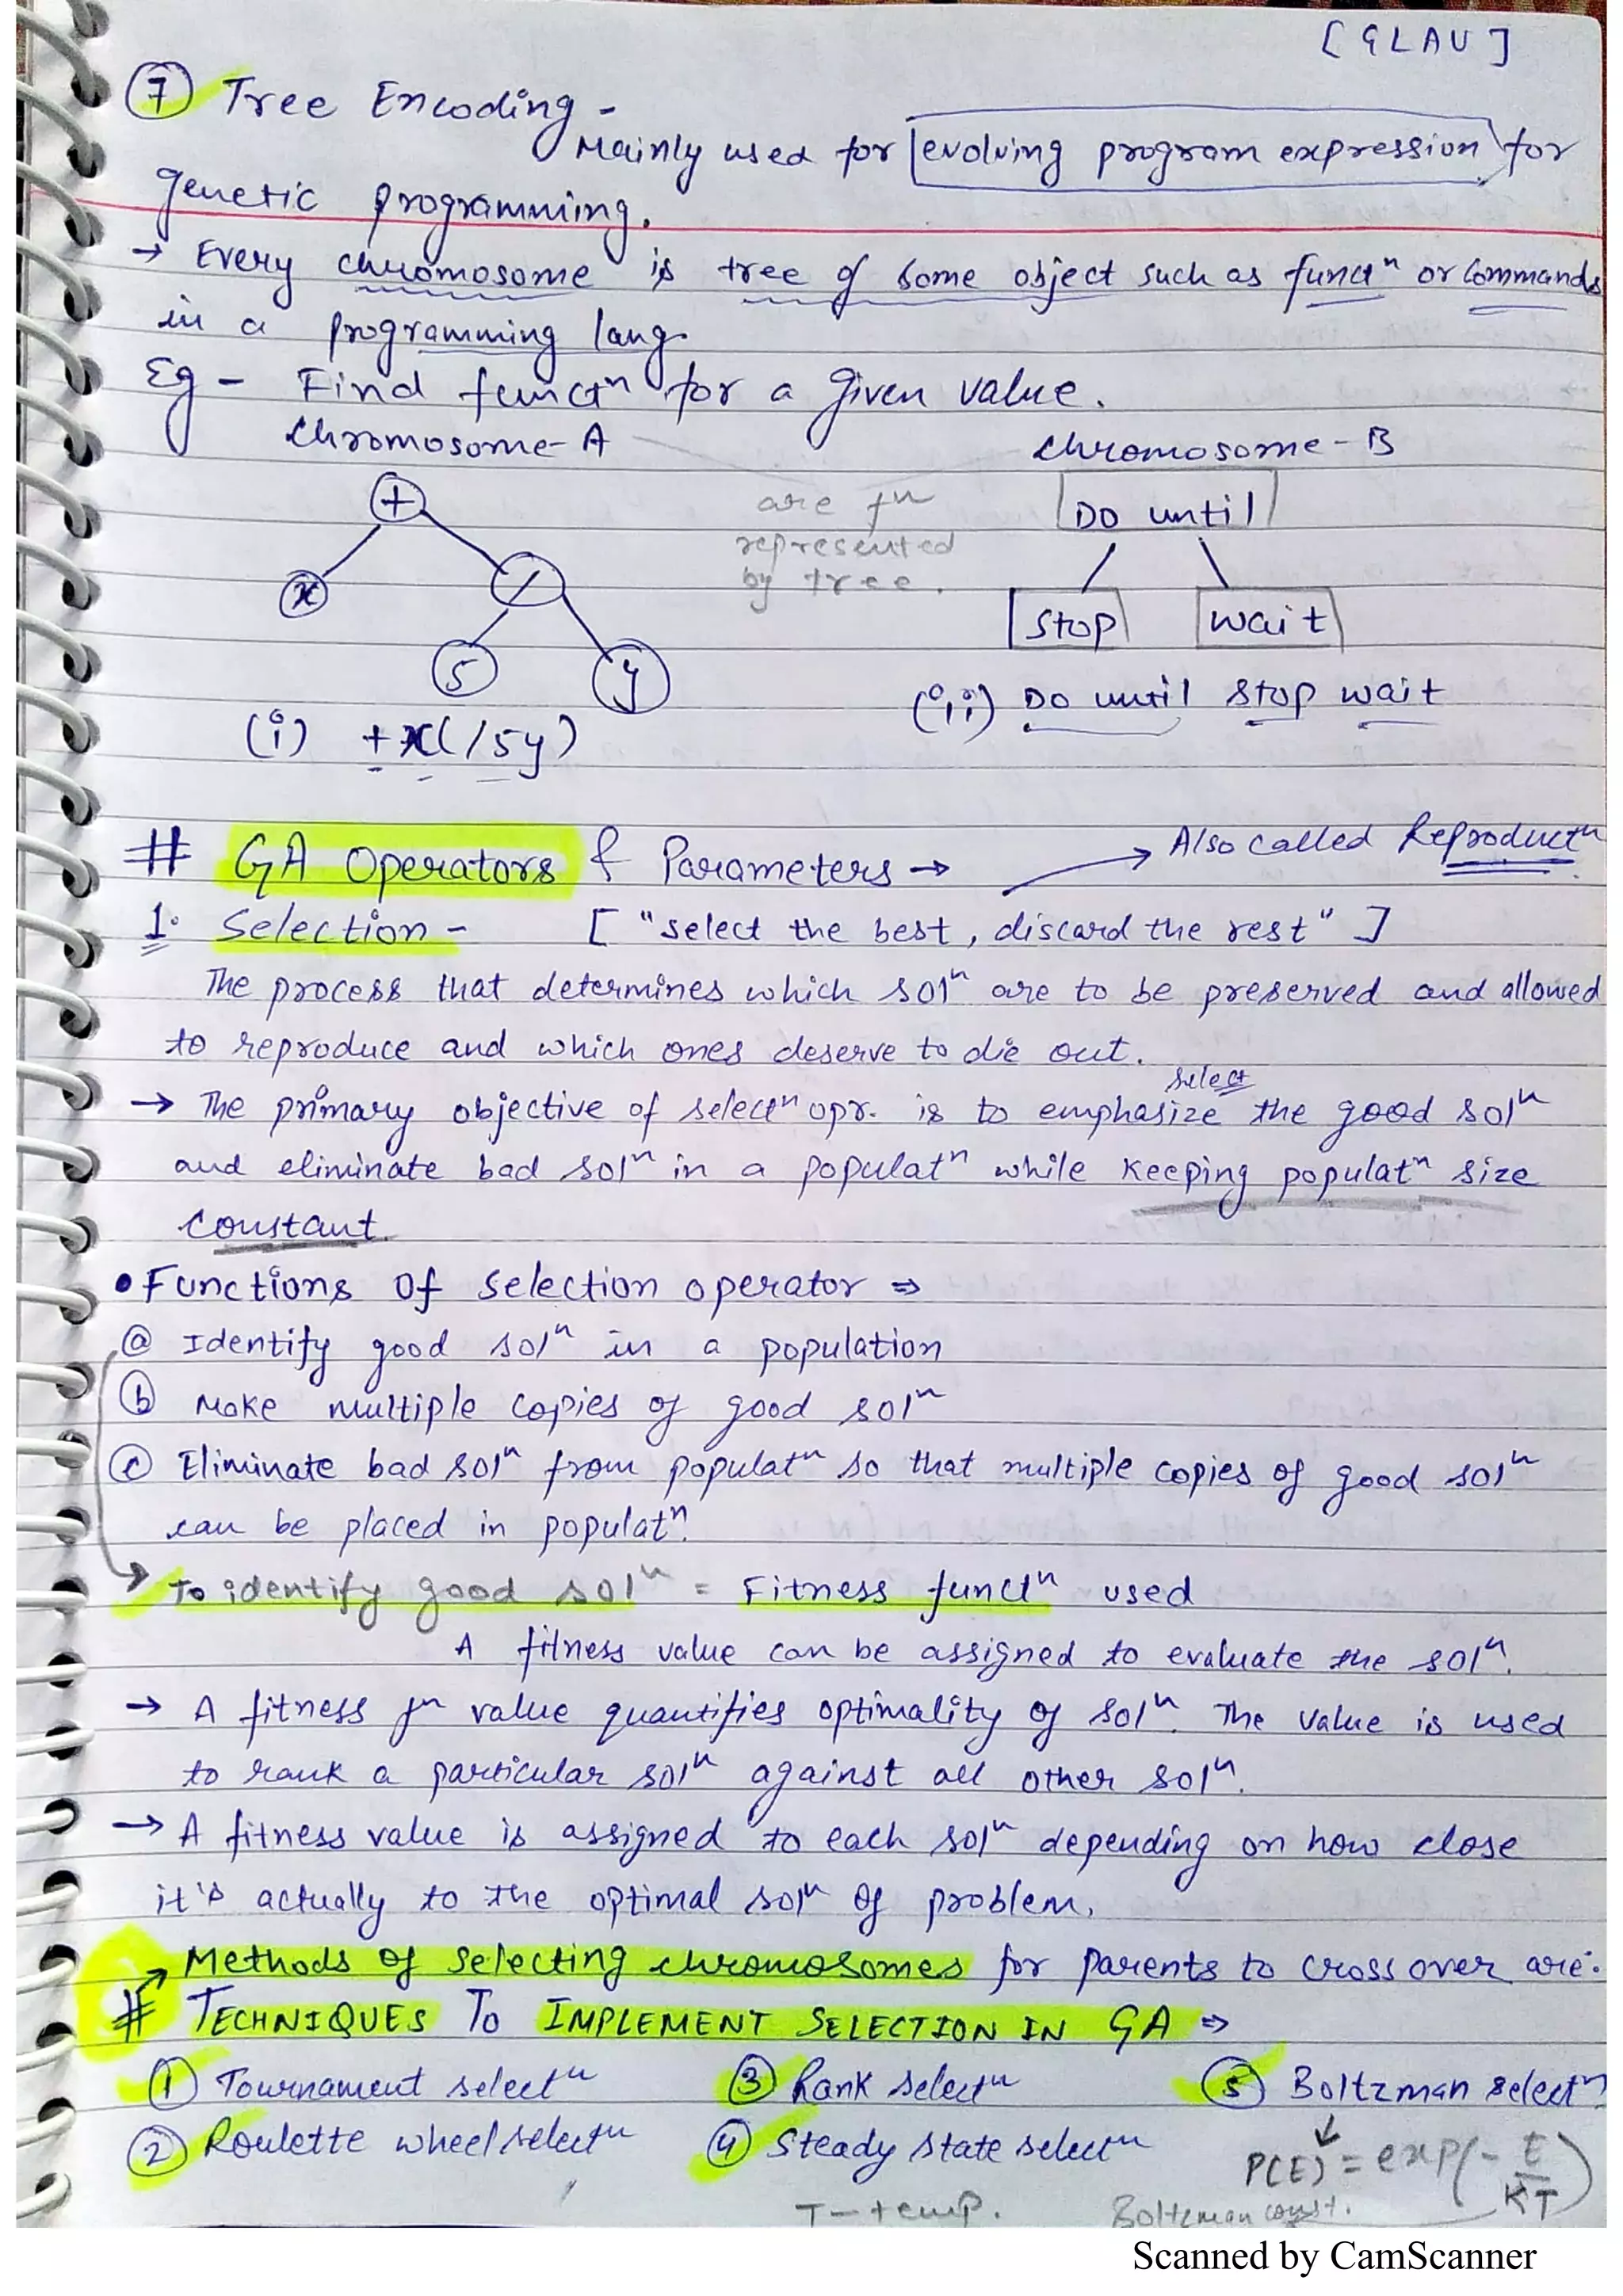 [GLAU]
⑦ Tree Encoding -
Mainly used for evolving program expression for
genetic programming.
→ Every chromosome is tree of some object such as functⁿ or commands
in a programming lang.
Eg - Find functⁿ for a given value.
Chromosome-A Chromosome-B
+
x
/
5
y
are fⁿ
represented
by tree.
Do until
Stop
wait
(i) +x(/5y)
(ii) Do until stop wait
# GA Operators & Parameters → → Also called Reproductⁿ
1. Selection - ["select the best, discard the rest"]
The process that determines which solⁿ are to be preserved and allowed
to reproduce and which ones deserve to die out.
select
→ The primary objective of selectⁿ opr. is to emphasize the good solⁿ
and eliminate bad solⁿ in a populatⁿ while keeping populatⁿ size
constant.
• Functions of selection operator ⇒
ⓐ Identify good solⁿ in a population
ⓑ Make multiple copies of good solⁿ
ⓒ Eliminate bad solⁿ from populatⁿ so that multiple copies of good solⁿ
can be placed in populatⁿ.
→ To identify good solⁿ = Fitness functⁿ used
A fitness value can be assigned to evaluate the solⁿ.
→ A fitness fⁿ value quantifies optimality of solⁿ. The value is used
to rank a particular solⁿ against all other solⁿ.
→ A fitness value is assigned to each solⁿ depending on how close
it's actually to the optimal solⁿ of problem.
→ Methods of selecting chromosomes for parents to cross over are:
# TECHNIQUES TO IMPLEMENT SELECTION IN GA ⇒
① Tournament selectⁿ ③ Rank selectⁿ ⑤ Boltzman selectⁿ
② Roulette wheel selectⁿ ④ Steady state selectⁿ
P(E) = exp(-E/KT)
T - temp. Boltzman const.
Scanned by CamScanner